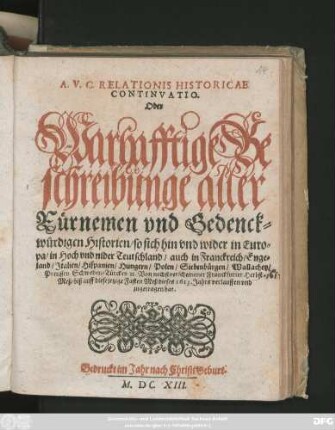 A. V. C. RELATIONIS HISTORICAE
CONTINVATIO.
Oder
Warhafftige Be
schreibunge aller
Fürnemen vnd Gedenck-
würdigen Historien / so sich hin vnd wider in Euro-
pa / in Hoch vnd nider Teutschland / auch in Franckreich / Enge-
land / Italien / Hispanien / Hungern / Polen / Siebenbürgen / Wallachey /
Preussen Schweden / Türcken
Meß biß auff diese jetzige Fasten Meß dieses 1613. Jahrs verlauffen vnd
zugetragen
Gedruckt im Jahr nach Christi Geburt.
M. DC. XIII.